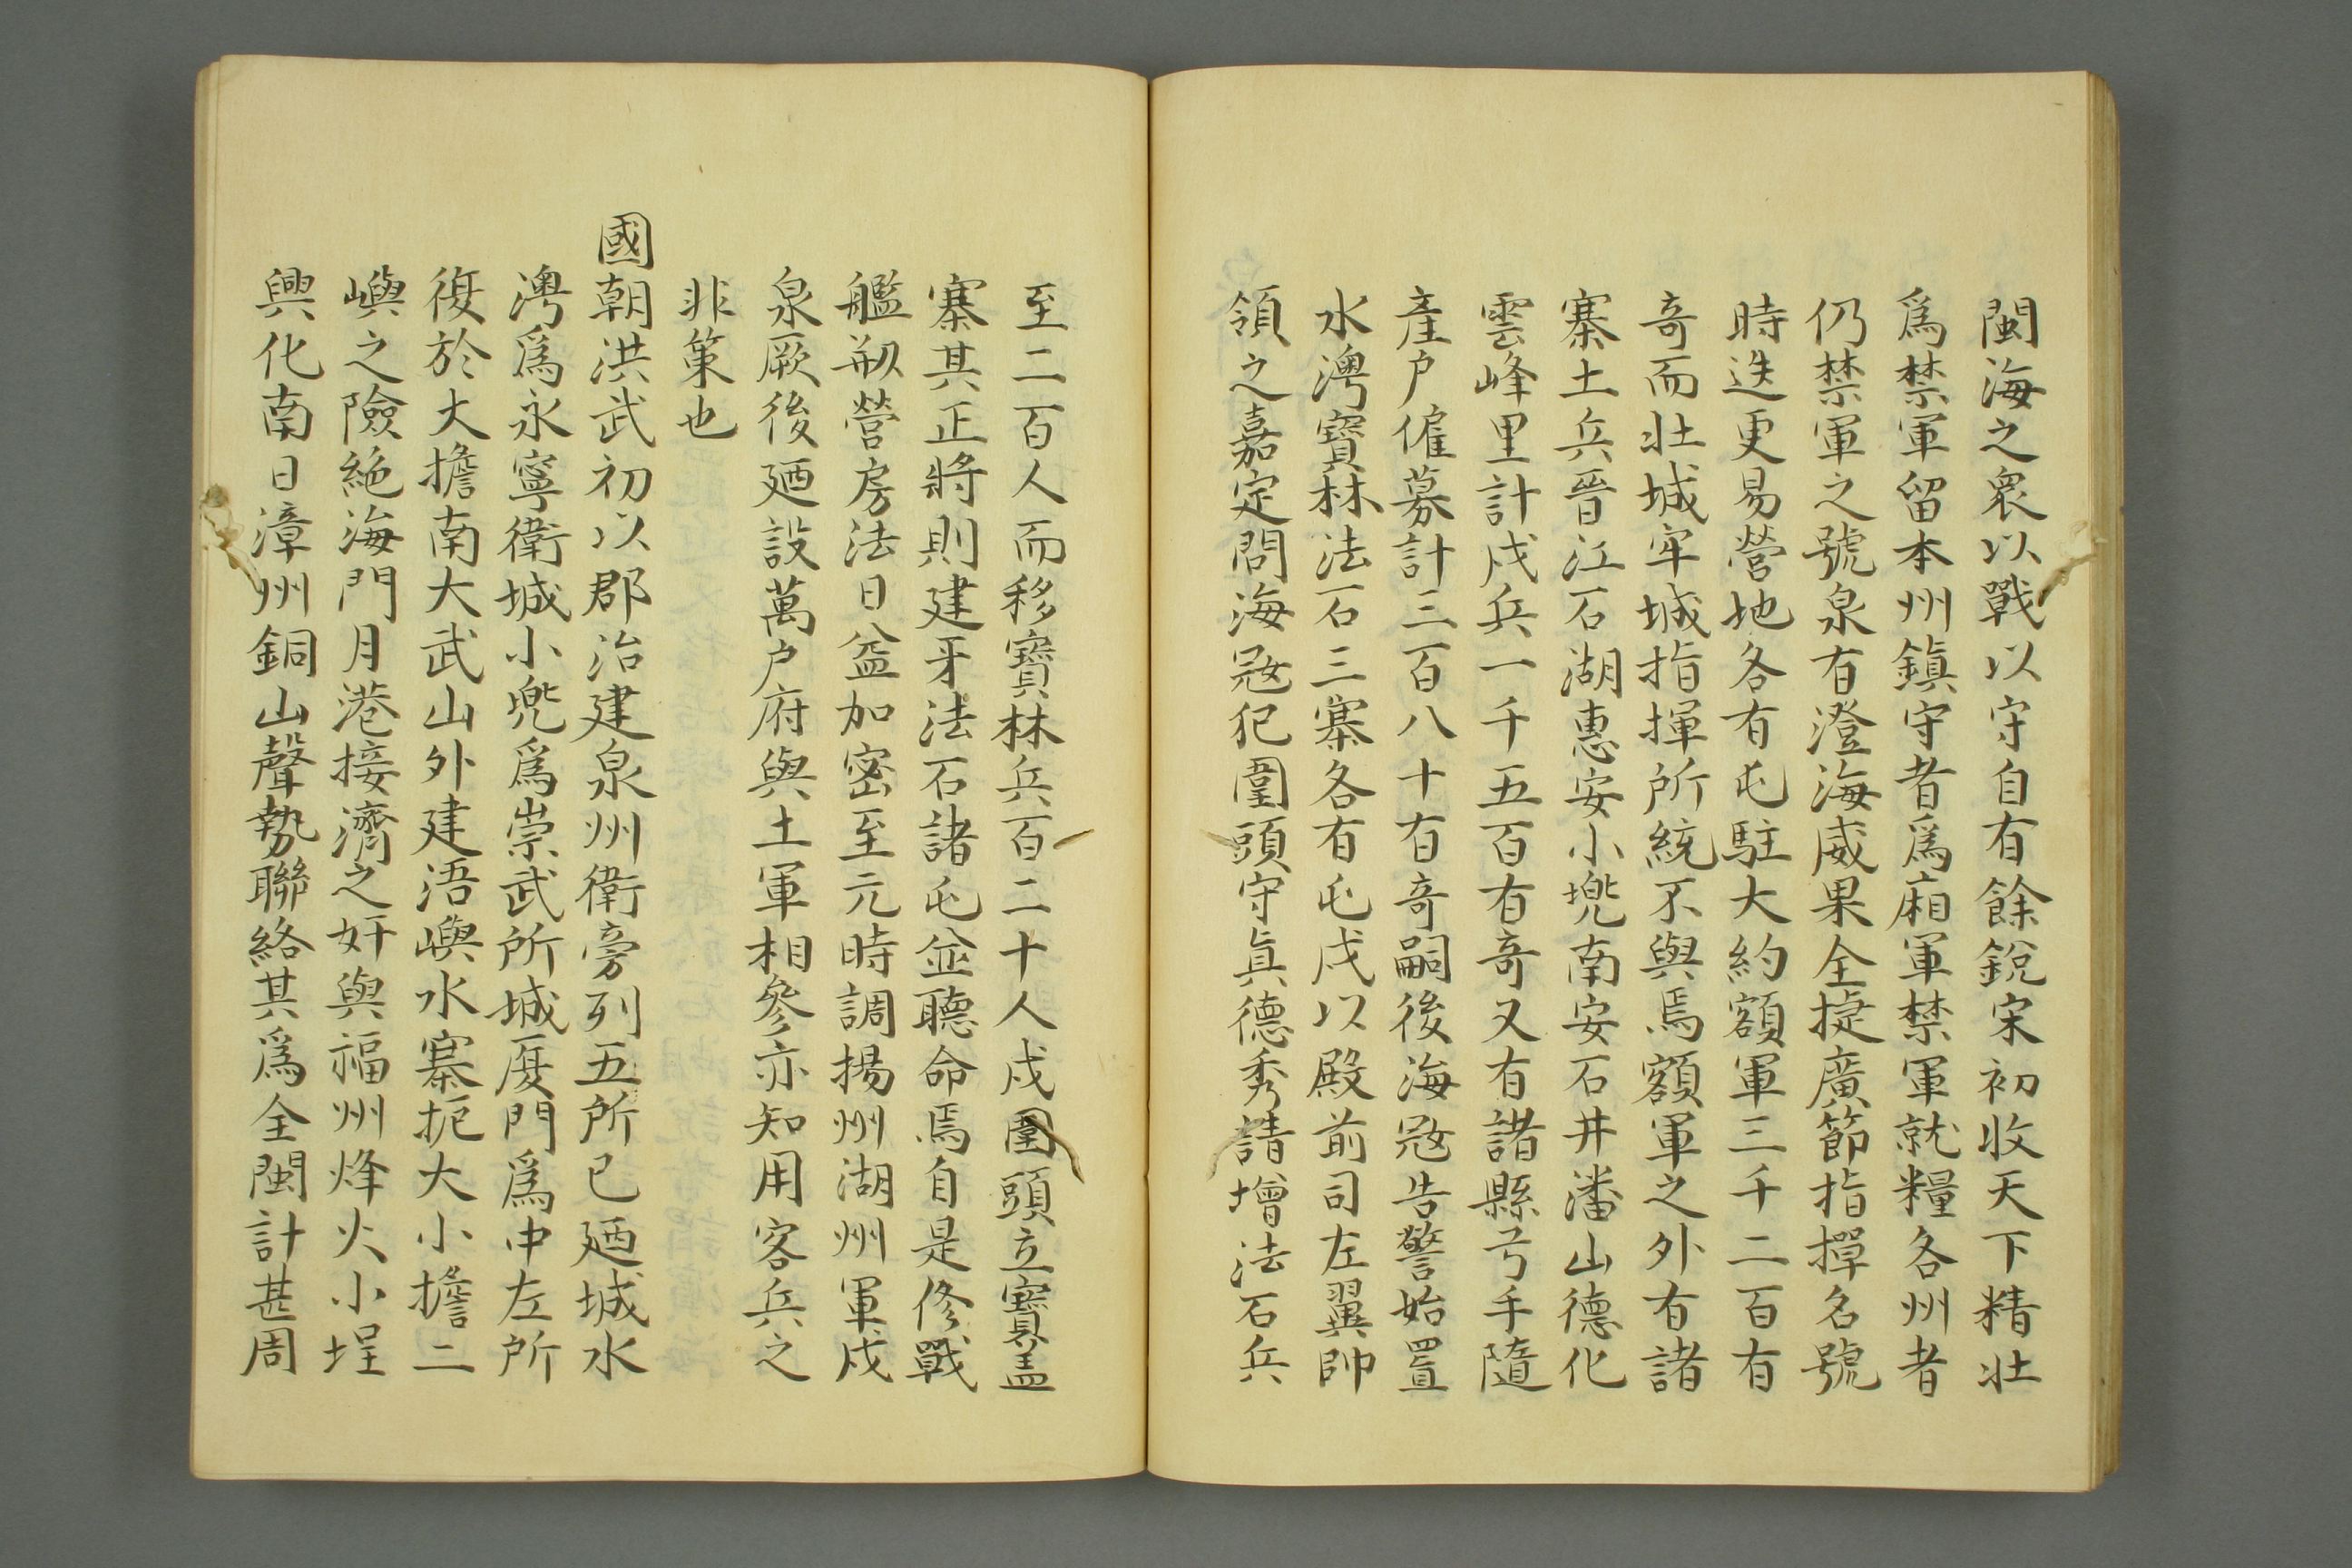 閩海之衆以戰以守自有餘銳宋初收天下精壯
爲禁軍留本州鎮守者爲廂軍禁軍就糧各州者
仍禁軍之號泉有澄海威果全捷廣節指揮名號
時迭更易營地各有屯駐大約額軍三千二百有
奇而壯城牢城指揮所統不與焉額軍之外有諸
寨土兵晉江石湖惠安小兠南安石井潘山德化
雲峰里計戍兵一千五百有奇又有諸縣弓手隨
產户僱募計三百八十有奇嗣後海冦告警始置
水澚寶林法石三寨各有屯戍以殿前司左翼帥
領之嘉定間海冦犯圍頭守真德秀請增法石兵
至二百人而移寶林兵百二十人戍圍頭立寳盖
寨其正將則建牙法石諸屯並聽命焉自是修戰
艦剏營房法日益加密至元時調揚州湖州軍戍
泉厥後廼設萬户府與土軍相參亦知用客兵之
非策也
國朝洪武初以郡治建泉州衛旁列五所已廼城水
澚爲永寧衛城小兠爲崇武所城厦門爲中左所
復於大擔南大武山外建浯嶼水寨扼大小擔二
嶼之險絶海門月港接濟之奸與福州烽火小埕
興化南日漳州銅山聲勢聯絡其爲全閩計甚周